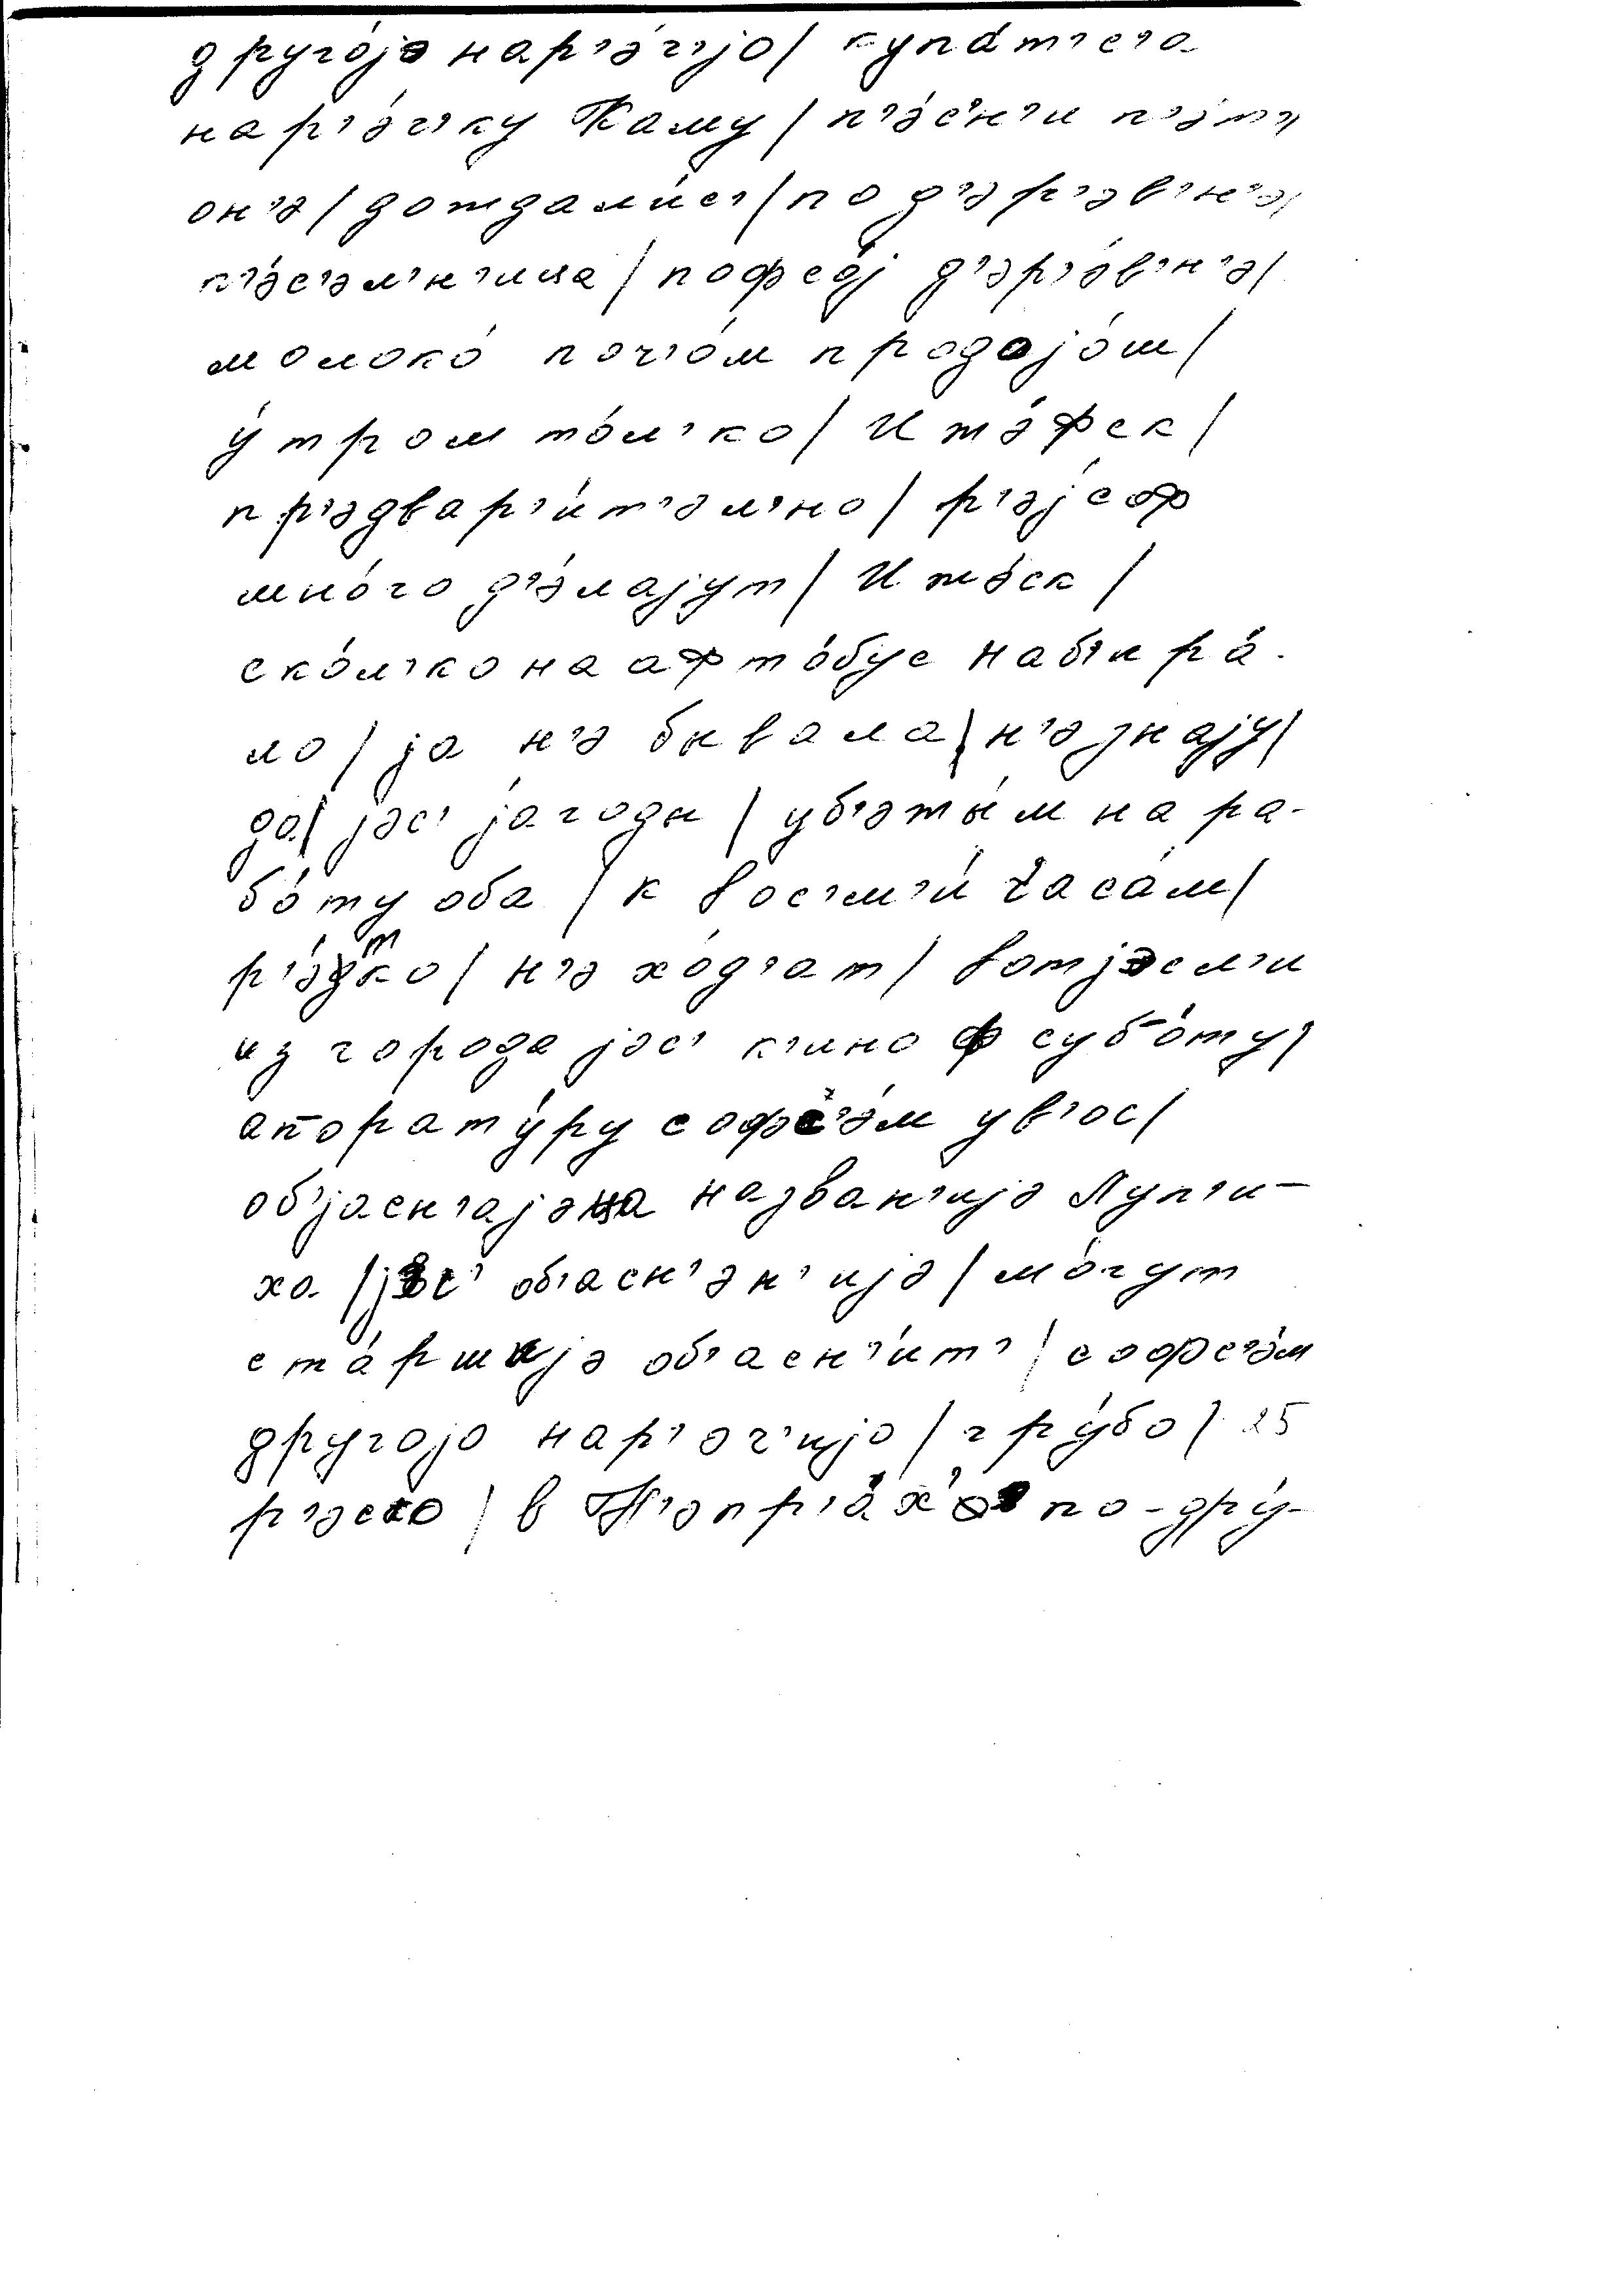 друго́јэ нар'э́ч'јо/ купа́т'с'а
нар'э́ч'ку Каму/ п'э́с'н'и п'э́т'и
он'э/ дожда́лис'/ по д'эр'эв'н'э/
п'э́с'эл'н'ица/ пофсе́ј д'эр'э́в'н'э/
молоко́ поч'о́м продајо́ш/
у́тром то́л'ко/ Ижэ́фск/
пр'эдвар'и́т'эл'но/ р'э́јсоф
мно́го д'э́лајут/ Ижэ́ск/
ско́л'ко на афто́бус наб'ира́-
ло/ ја н'э бывала/ н'э знају/
да/ јэс' ја́годы/ уб'эжы́м на ра-
бо́ту оба/ к вос'м'и́ часа́м/
р'э́тко/ н'э хо́д'ат/ вот јэсл'и
из города јэс' к'ино ф субо́ту/
апорату́ру софс'э́м ув'ос/
об'јасн'ајэца назван'ијэ Луп'и-
ха/ јэс' об'асн'эн'ијэ/ мо́гут
ста́ршыјэ об'асн'и́т'/ софс'э́м
другојо нар'эч'ијо/ гру́бо/ 25
р'эско/ в П'эпр'а́х'э по-дру́-